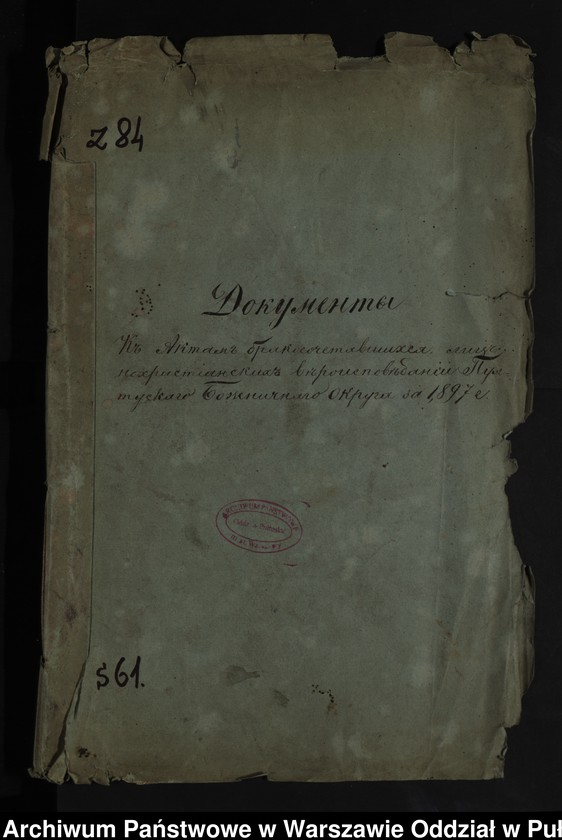 Z 84
Документы
Къ Актамъ бракосочетавшихся лицъ
нехристіанскихъ вѣроисповѣданій Пул-
тускаго Божничнаго Округа за 1897 г.
ARCHIWUM PAŃSTWOWE
Oddz. w Pułtusku
S 61.
Archiwum Państwowe w Warszawie Oddział w Puł